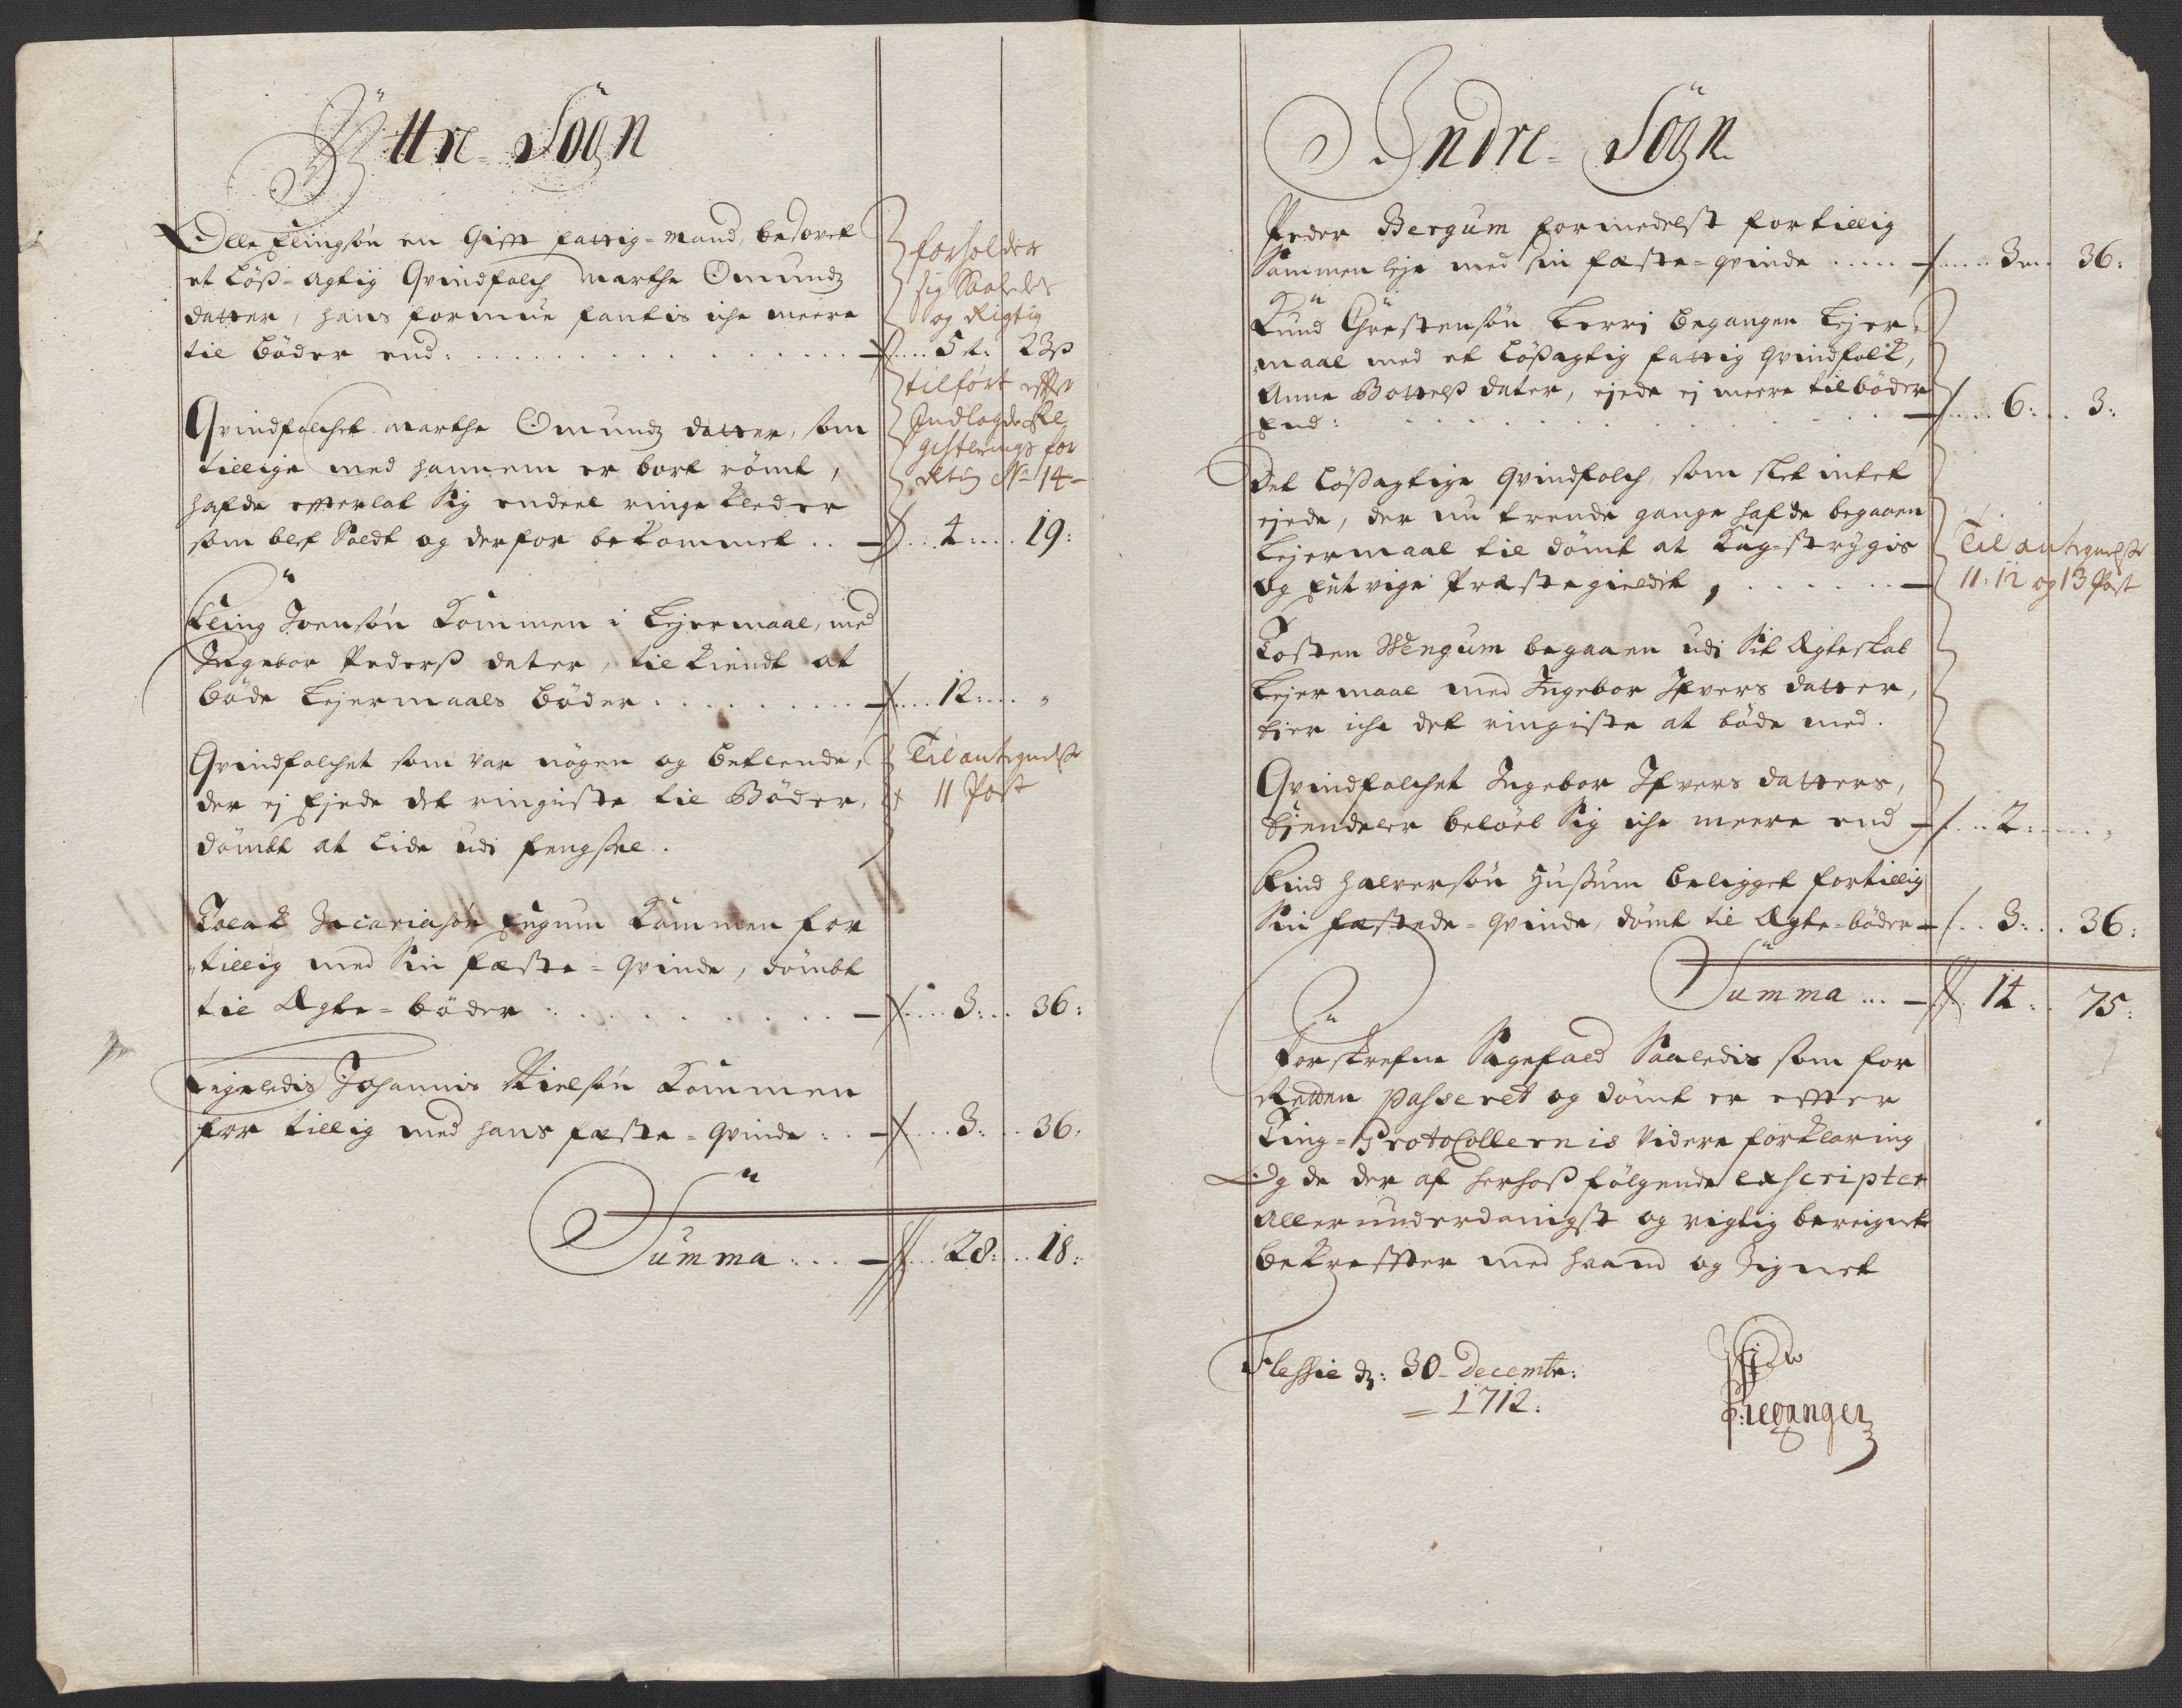 Ÿttre-Sogn
Olle Elingsøn en Gifft fattig-Mand, besovet
et Løs-agtig Qvindfolch Marthe Omundz
datter, hans formue fantis iche meere
til bøder end: 5 23ß
forholder
sig Saaledes
og Rigtig
tilført effter
Indlagde Re
gisterings for
retning No 14
Qvindfolchet Marthe Omundz datter, som
tillige med hannem er bort rømt,
hafde efterlat Sig endeel ringe kleder
som blef Soldt og derfor bekommet .. 4 .... 19:
Eling Joensøn kommen i Lejermaal, med
Ingebor Pederß dater, tilkiendt at
bøde Lejermaals bøder ......... 12: .... "
Qvindfolchet som var nøgen og betlende,
der ej Ejede det ringeste til Bøder,
dømbt at lide udi fengsel.
Til antegnelse
11 Post
Tolak Zacariasøn Eugum kommen for
tillig med Sin feste-Qvinde, dømbt
til Ægte-bøder ......... 3: .. 36:
Ligeledis Johannis Nielsøn kommen
for tillig med hans feste-Qvinde: .. 3: .. 36:
Summa .... 28: ... 18:
Indre-Sogn
Peder Bergum formedelst fortillig
Sammenleje med sin feste-qvinde ..... 3 ... 36:
Knud Chrestensøn Lerri begangen Lejer-
maal med et Løsagtig fattig qvindfolk,
Anne Bottelß dater, ejede ej meere til bøder
End: ......... 6: ... 3:
Det Løsagtige Qvindfolch, som slet intet
ejede, der nu trende gange hafde begaaen
Lejermaal til dømt at Kag-strygis
og Entvige Præstegieldet,
Til antegnelse
11: 12 og 13 Post
Tosten Wengum begaaen udi Sit Ægteskab
Lejermaal med Ingebor Ifvers datter,
Ejer iche det ringiste at bøde med.
Qvindfolchet Ingebor Ifvers datters,
Ejendeler beløb Sig iche meere end .. 2: .... "
Knud Halversøn Hussum beligget fortillig
Sin festede-qvinde, dømt til Ægte-bøder .. 3: .. 36:
Summa ... 14: .. 75:
Forskrefne Sagefald Saaledis som for
Retten passeret og dømt er effter
Ting-Protocollernis Videre forklaring
Og de der af herhoß følgende exscripter
Allerunderdanigst og rigtig beregnet
bekreffter med haand og Zignet
Flessie d: 30 Decembr:
1712: